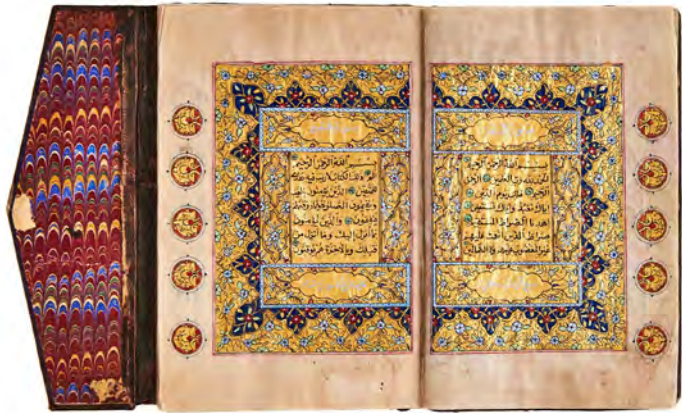 بسم الله الرحمن الرحيم
الحمد لله رب العالمين الرحمن
الرحيم مالك يوم الدين
اياك نعبد واياك نستعين
اهدنا الصراط المستقيم
صراط الذين انعمت عليهم
غير المغضوب عليهم ولا الضالين
بسم الله الرحمن الرحيم
الم ذلك الكتاب لا ريب فيه هدى
للمتقين الذين يؤمنون بالغيب
ويقيمون الصلوة ومما رزقناهم
ينفقون والذين يؤمنون
بما انزل اليك وما انزل من
قبلك وبالاخرة هم يوقنون